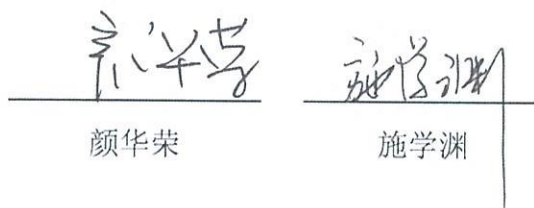 颜华荣 施学渊
颜华荣 施学渊